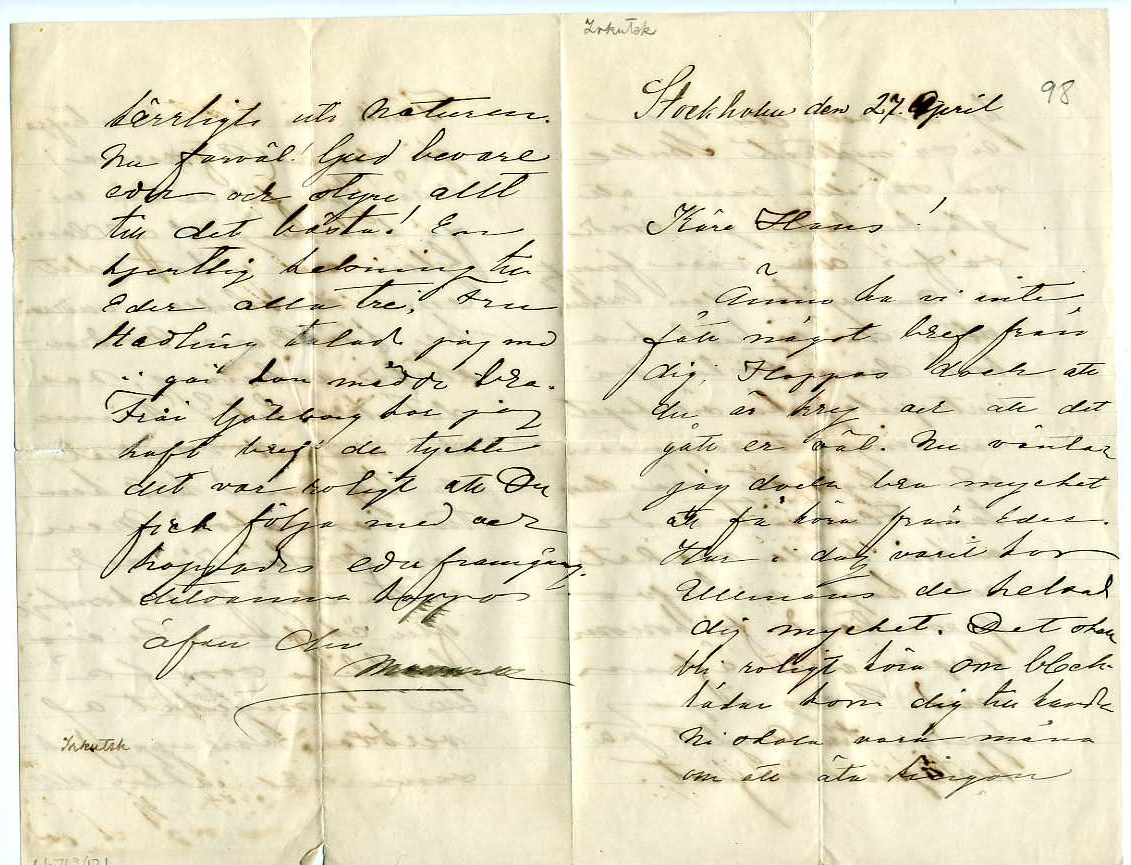 Irkutsk
98
Stockholm den 27. April
Käre Hans!
Ännu ha vi inte
fått något bref från
dig, Hoppas dock att
du är kry och att det
gått er väl. Nu väntar
jag dock bra mycket
att få höra från Eder.
Har i dag varit hos
Ullmans de helsad
dig mycket. Det skall
bli roligt höra om bleck-
lådan kom dig till handa
Ni skola vara måna
om att äta lingon
härrligt ute Naturen.
Nu farväl! Gud bevare
eder och styre allt
till det bästa! En
hjertlig helsning till
Eder alla tre, Fru
Hedling talade jag med
i går hon mådde bra.
Från Göteborg har jag
haft bref de tyckte
det var roligt att Du
fick följa med och
hoppades eder framgång.
detsamma hoppas
äfven Din
Mamma
Irkutsk